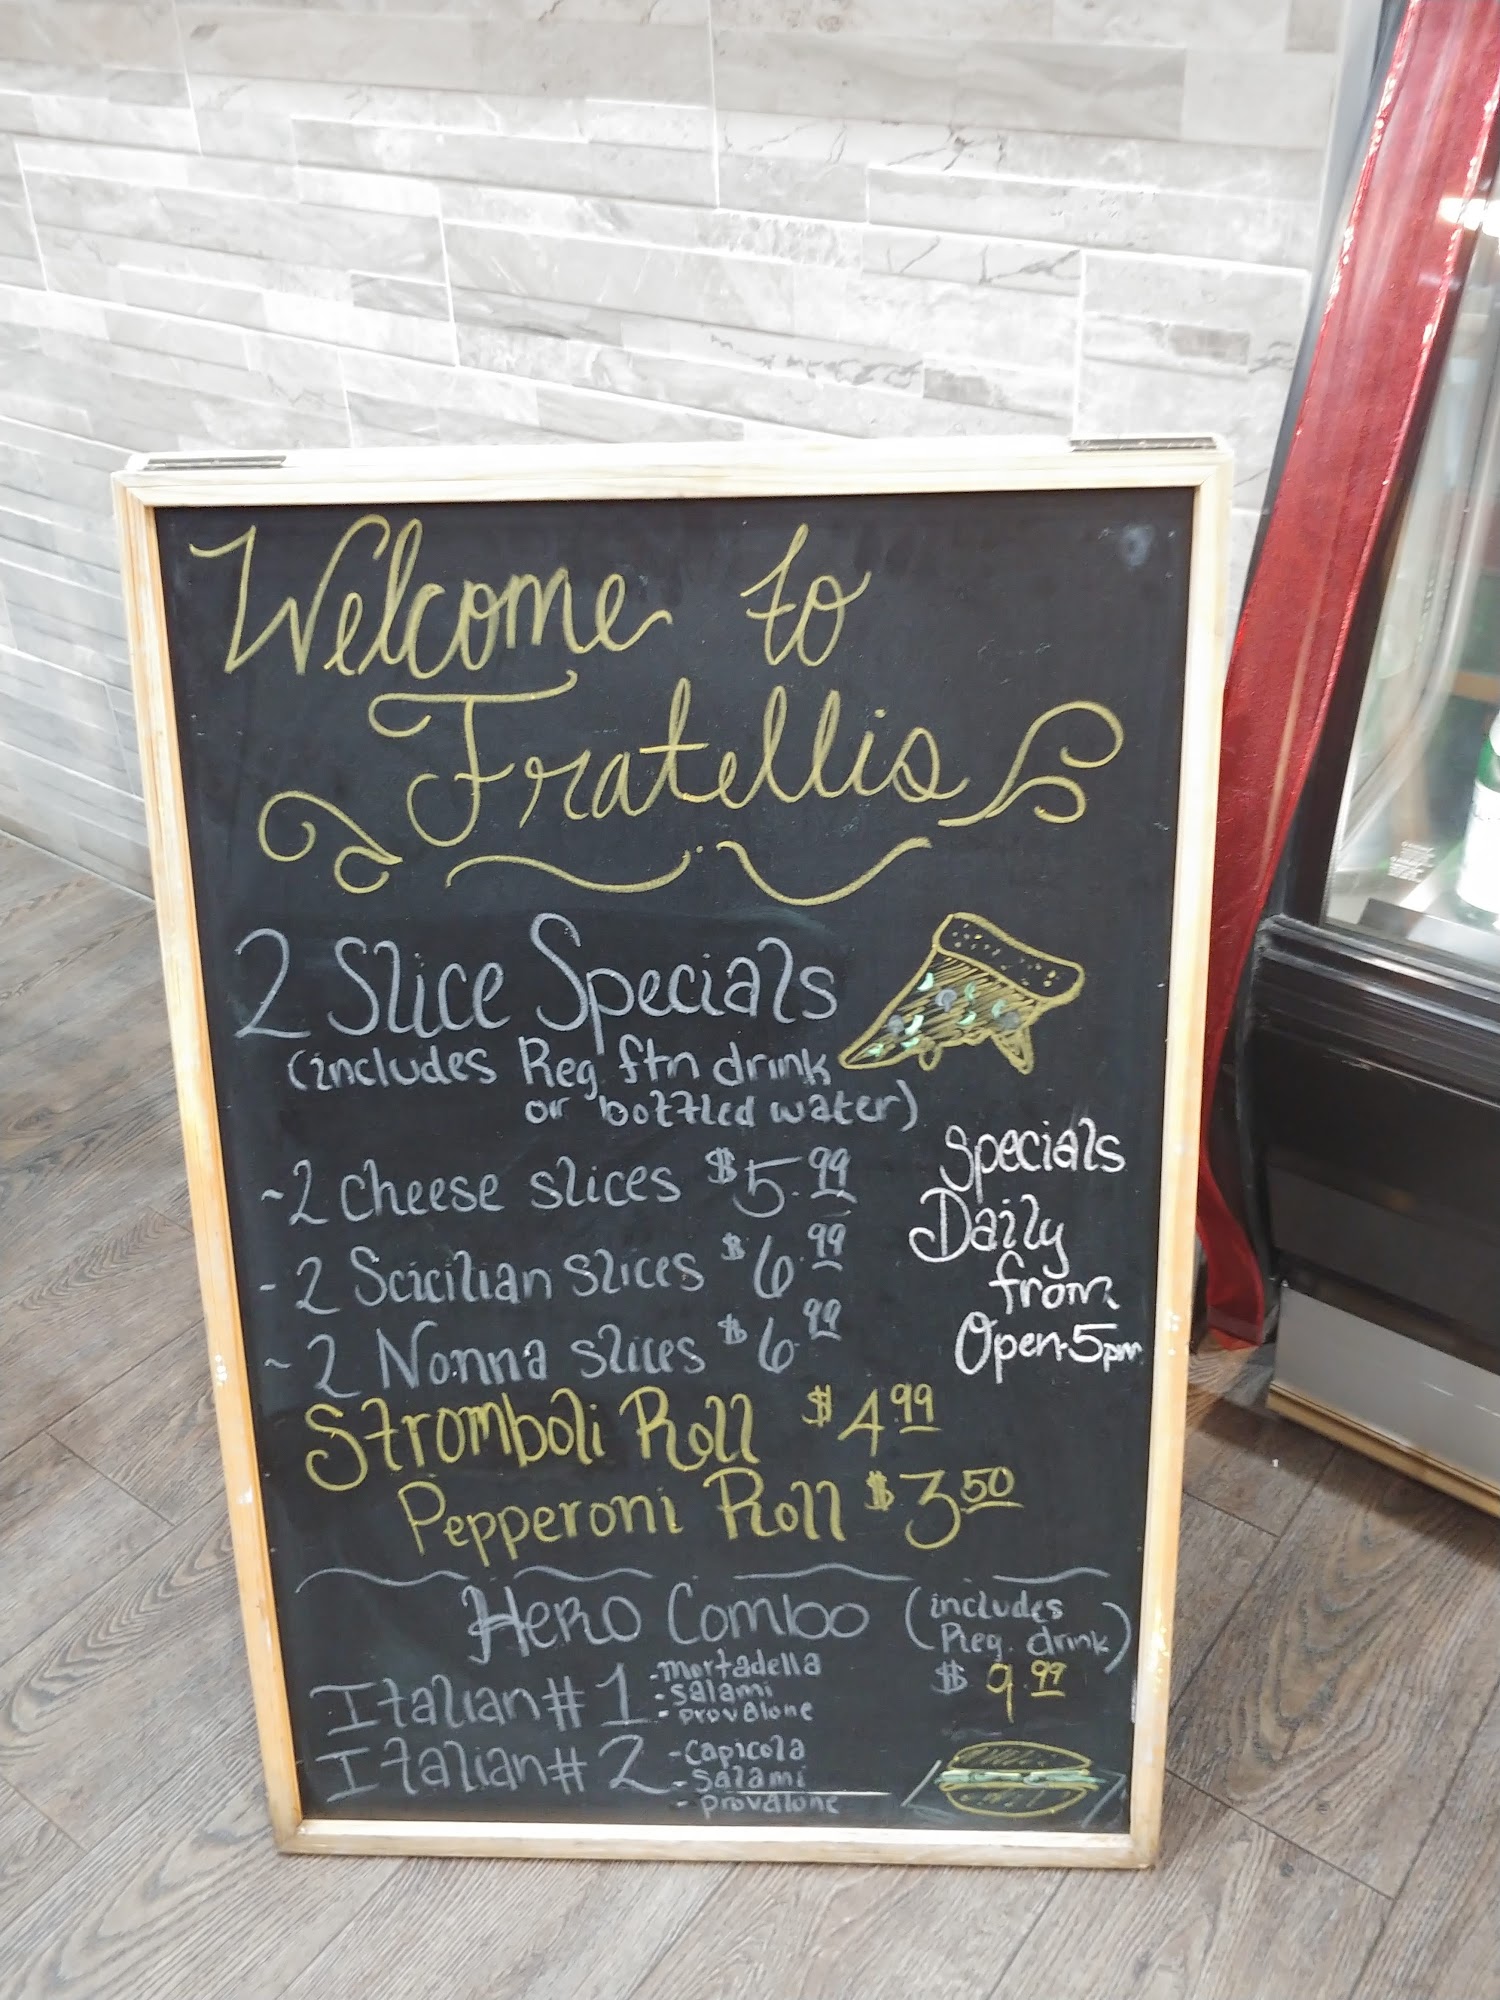 Welcome to
Fratellis
2 Slice Specials
(includes Reg. ftn drink
or bottled water)
~2 cheese slices $5.99
-2 Scicilian slices $6.99
~2 Nonna slices $6.99
Specials
Daily
from
Open-5pm
Stromboli Roll $4.99
Pepperoni Roll $3.50
Hero Combo (includes
Reg. drink)
$9.99
Italian #1 -mortadella
-salami
-provalone
Italian #2 -capicola
-salami
-provalone